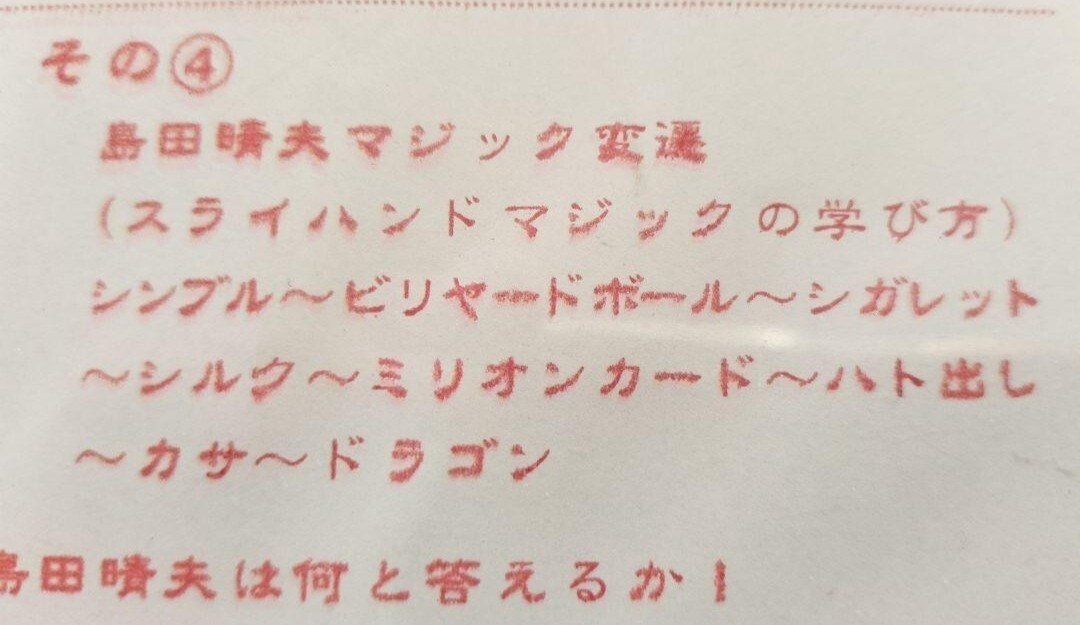 その④
島田晴夫マジック変遷
(スライハンドマジックの学び方)
シンブル～ビリヤードボール～シガレット
～シルク～ミリオンカード～ハト出し
～カサ～ドラゴン
島田晴夫は何と答えるか!